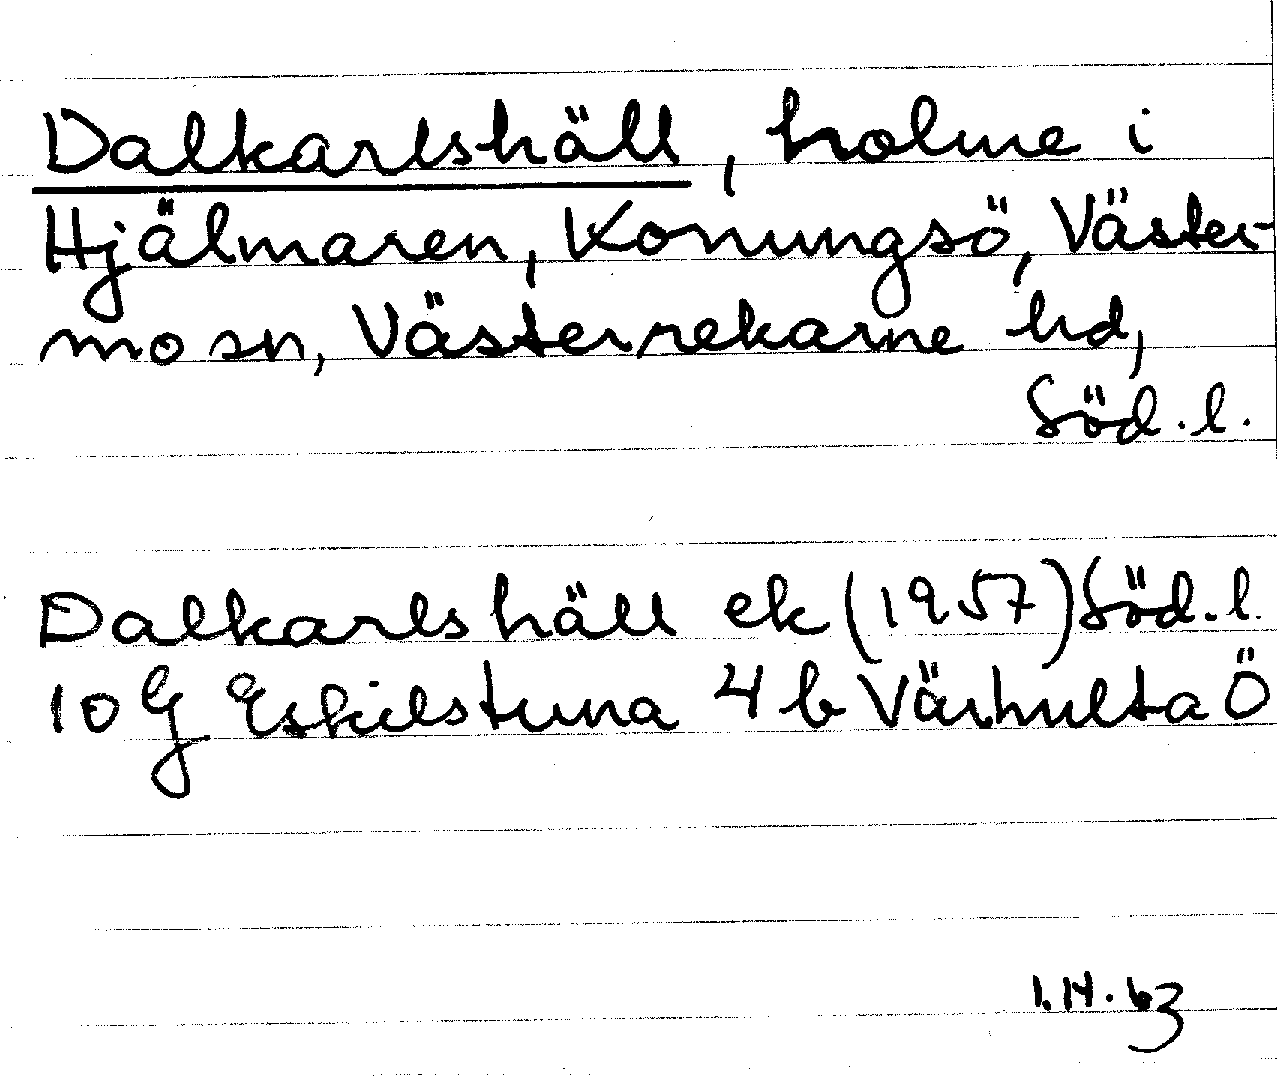 Dalkarlshäll, holme i
Hjälmaren, Konungsö, Väster-
mo sn, Västerrekarne hd,
Söd. l.
Dalkarlshäll ek (1957) Söd. l.
10 G Eskilstuna 4 b Värhulta Ö